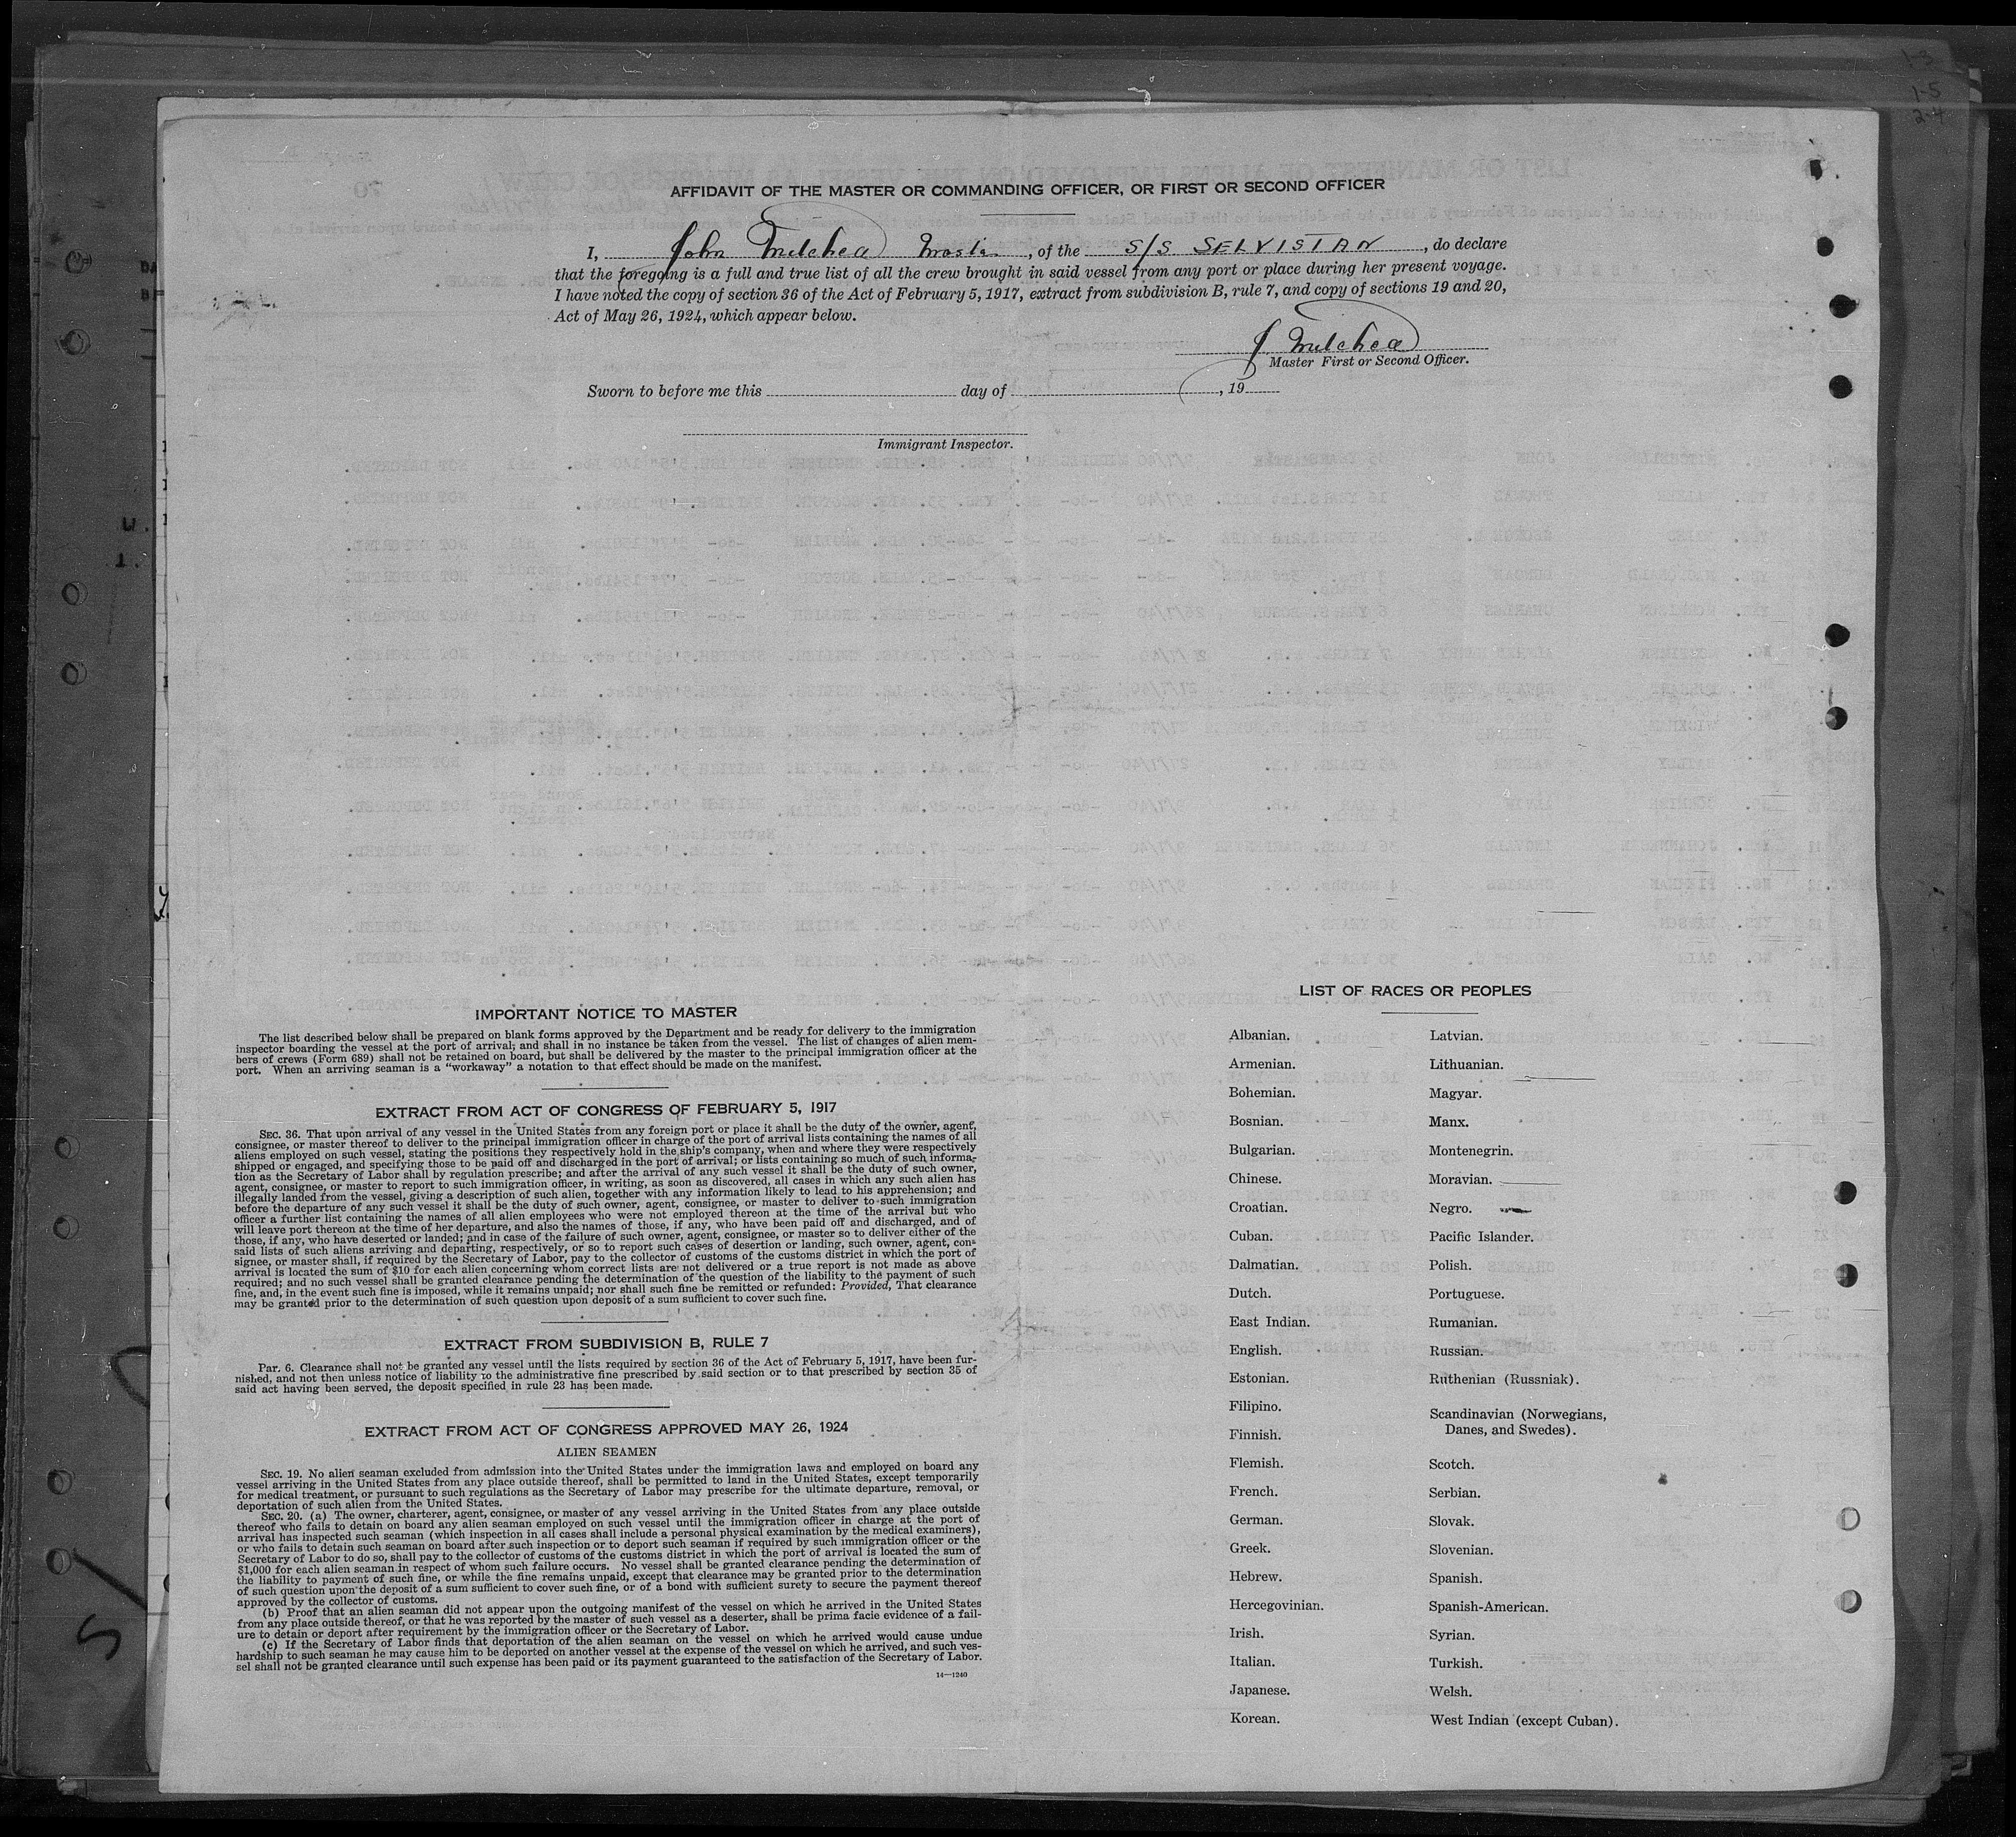 1-3
1-5
2-4
AFFIDAVIT OF THE MASTER OR COMMANDING OFFICER, OR FIRST OR SECOND OFFICER
I, John Mitchell Master, of the S/S SELVISTAN, do declare
that the foregoing is a full and true list of all the crew brought in said vessel from any port or place during her present voyage.
I have noted the copy of section 36 of the Act of February 5, 1917, extract from subdivision B, rule 7, and copy of sections 19 and 20,
Act of May 26, 1924, which appear below.
J Mitchell
Master First or Second Officer.
Sworn to before me this day of , 19
Immigrant Inspector.
IMPORTANT NOTICE TO MASTER
The list described below shall be prepared on blank forms approved by the Department and be ready for delivery to the immigration
inspector boarding the vessel at the port of arrival; and shall in no instance be taken from the vessel. The list of changes of alien mem-
bers of crews (Form 689) shall not be retained on board, but shall be delivered by the master to the principal immigration officer at the
port. When an arriving seaman is a "workaway" a notation to that effect should be made on the manifest.
EXTRACT FROM ACT OF CONGRESS OF FEBRUARY 5, 1917
SEC. 36. That upon arrival of any vessel in the United States from any foreign port or place it shall be the duty of the owner, agent,
consignee, or master thereof to deliver to the principal immigration officer in charge of the port of arrival lists containing the names of all
aliens employed on such vessel, stating the positions they respectively hold in the ship's company, when and where they were respectively
shipped or engaged, and specifying those to be paid off and discharged in the port of arrival; or lists containing so much of such informa-
tion as the Secretary of Labor shall by regulation prescribe; and after the arrival of any such vessel it shall be the duty of such owner,
agent, consignee, or master to report to such immigration officer, in writing, as soon as discovered, all cases in which any such alien has
illegally landed from the vessel, giving a description of such alien, together with any information likely to lead to his apprehension; and
before the departure of any such vessel it shall be the duty of such owner, agent, consignee, or master to deliver to such immigration
officer a further list containing the names of all alien employees who were not employed thereon at the time of the arrival but who
will leave port thereon at the time of her departure, and also the names of those, if any, who have been paid off and discharged, and of
those, if any, who have deserted or landed; and in case of the failure of such owner, agent, consignee, or master so to deliver either of the
said lists of such aliens arriving and departing, respectively, or so to report such cases of desertion or landing, such owner, agent, con-
signee, or master shall, if required by the Secretary of Labor, pay to the collector of customs of the customs district in which the port of
arrival is located the sum of $10 for each alien concerning whom correct lists are not delivered or a true report is not made as above
required; and no such vessel shall be granted clearance pending the determination of the question of the liability to the payment of such
fine, and, in the event such fine is imposed, while it remains unpaid; nor shall such fine be remitted or refunded: Provided, That clearance
may be granted prior to the determination of such question upon deposit of a sum sufficient to cover such fine.
EXTRACT FROM SUBDIVISION B, RULE 7
Par. 6. Clearance shall not be granted any vessel until the lists required by section 36 of the Act of February 5, 1917, have been fur-
nished, and not then unless notice of liability to the administrative fine prescribed by said section or to that prescribed by section 35 of
said act having been served, the deposit specified in rule 23 has been made.
EXTRACT FROM ACT OF CONGRESS APPROVED MAY 26, 1924
ALIEN SEAMEN
SEC. 19. No alien seaman excluded from admission into the United States under the immigration laws and employed on board any
vessel arriving in the United States from any place outside thereof, shall be permitted to land in the United States, except temporarily
for medical treatment, or pursuant to such regulations as the Secretary of Labor may prescribe for the ultimate departure, removal, or
deportation of such alien from the United States.
SEC. 20. (a) The owner, charterer, agent, consignee, or master of any vessel arriving in the United States from any place outside
thereof who fails to detain on board any alien seaman employed on such vessel until the immigration officer in charge at the port of
arrival has inspected such seaman (which inspection in all cases shall include a personal physical examination by the medical examiners),
or who fails to detain such seaman on board after such inspection or to deport such seaman if required by such immigration officer or the
Secretary of Labor to do so, shall pay to the collector of customs of the customs district in which the port of arrival is located the sum of
$1,000 for each alien seaman in respect of whom such failure occurs. No vessel shall be granted clearance pending the determination of
the liability to payment of such fine, or while the fine remains unpaid, except that clearance may be granted prior to the determination
of such question upon the deposit of a sum sufficient to cover such fine, or of a bond with sufficient surety to secure the payment thereof
approved by the collector of customs.
(b) Proof that an alien seaman did not appear upon the outgoing manifest of the vessel on which he arrived in the United States
from any place outside thereof, or that he was reported by the master of such vessel as a deserter, shall be prima facie evidence of a fail-
ure to detain or deport after requirement by the immigration officer or the Secretary of Labor.
(c) If the Secretary of Labor finds that deportation of the alien seaman on the vessel on which he arrived would cause undue
hardship to such seaman he may cause him to be deported on another vessel at the expense of the vessel on which he arrived, and such ves-
sel shall not be granted clearance until such expense has been paid or its payment guaranteed to the satisfaction of the Secretary of Labor.
14—1240
LIST OF RACES OR PEOPLES
Albanian.
Armenian.
Bohemian.
Bosnian.
Bulgarian.
Chinese.
Croatian.
Cuban.
Dalmatian.
Dutch.
East Indian.
English.
Estonian.
Filipino.
Finnish.
Flemish.
French.
German.
Greek.
Hebrew.
Hercegovinian.
Irish.
Italian.
Japanese.
Korean.
Latvian.
Lithuanian.
Magyar.
Manx.
Montenegrin.
Moravian.
Negro.
Pacific Islander.
Polish.
Portuguese.
Rumanian.
Russian.
Ruthenian (Russniak).
Scandinavian (Norwegians,
Danes, and Swedes).
Scotch.
Serbian.
Slovak.
Slovenian.
Spanish.
Spanish-American.
Syrian.
Turkish.
Welsh.
West Indian (except Cuban).